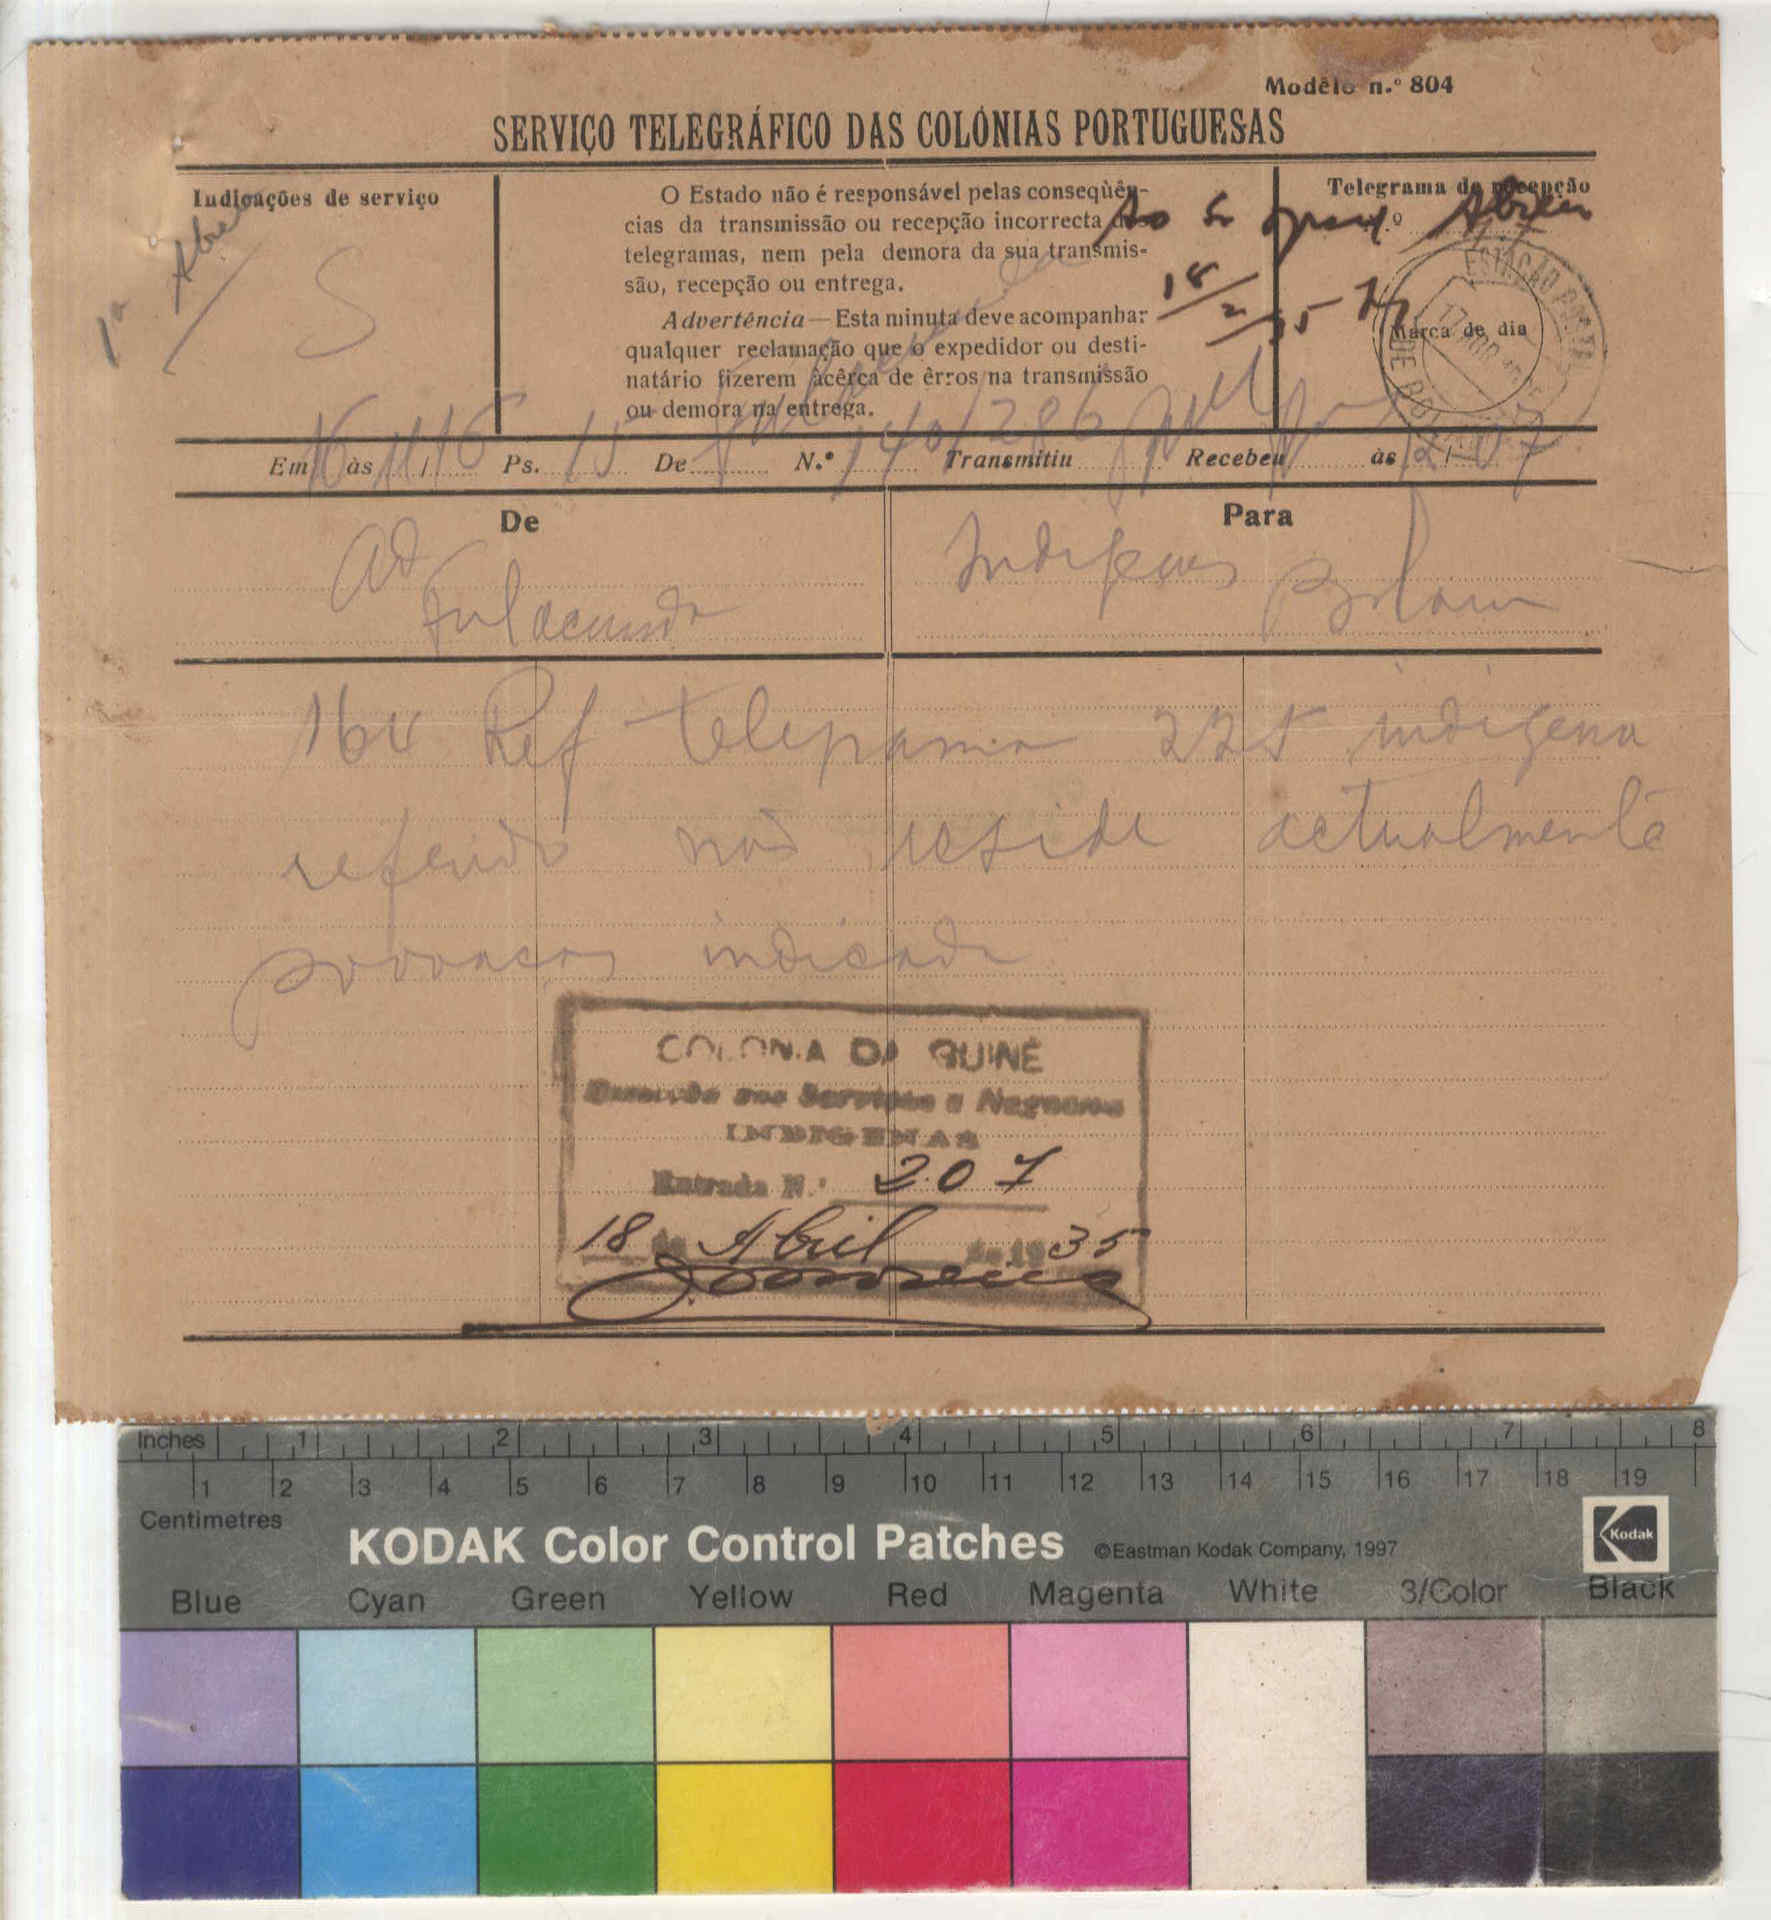 Modêlo n.º 804
SERVIÇO TELEGRÁFICO DAS COLÓNIAS PORTUGUESAS
Indicações de serviço
1ª Abreu
S
O Estado não é responsável pelas conseqùên-
cias da transmissão ou recepção incorrecta dos
telegramas, nem pela demora da sua transmis-
são, recepção ou entrega.
Advertência—Esta minuta deve acompanhar
qualquer reclamação que o expedidor ou desti-
natário fizerem àcêrca de êrros na transmissão
ou demora na entrega.
Telegrama de recepção
Ao Abreu
18/ /35
Marca de dia
ESTAÇÃO POSTAL
Em 16 às 11/15 Ps. 15 De N.º 140/286 Transmitiu Recebeu às 12/07
De
Para
Ad
Fulacunda
Indigenas
Bolama
Ref telegrama 225 indigena
referido não reside actualmente
indicada
COLONIA DA GUINÉ
Direcção dos Serviços e Negocios
INDIGENAS
Entrada N.º 207
18 de Abril de 1935
Inches 1 2 3 4 5 6 7 8
1 2 3 4 5 6 7 8 9 10 11 12 13 14 15 16 17 18 19
Centimetres
KODAK Color Control Patches ©Eastman Kodak Company, 1997
Kodak
Blue Cyan Green Yellow Red Magenta White 3/Color Black